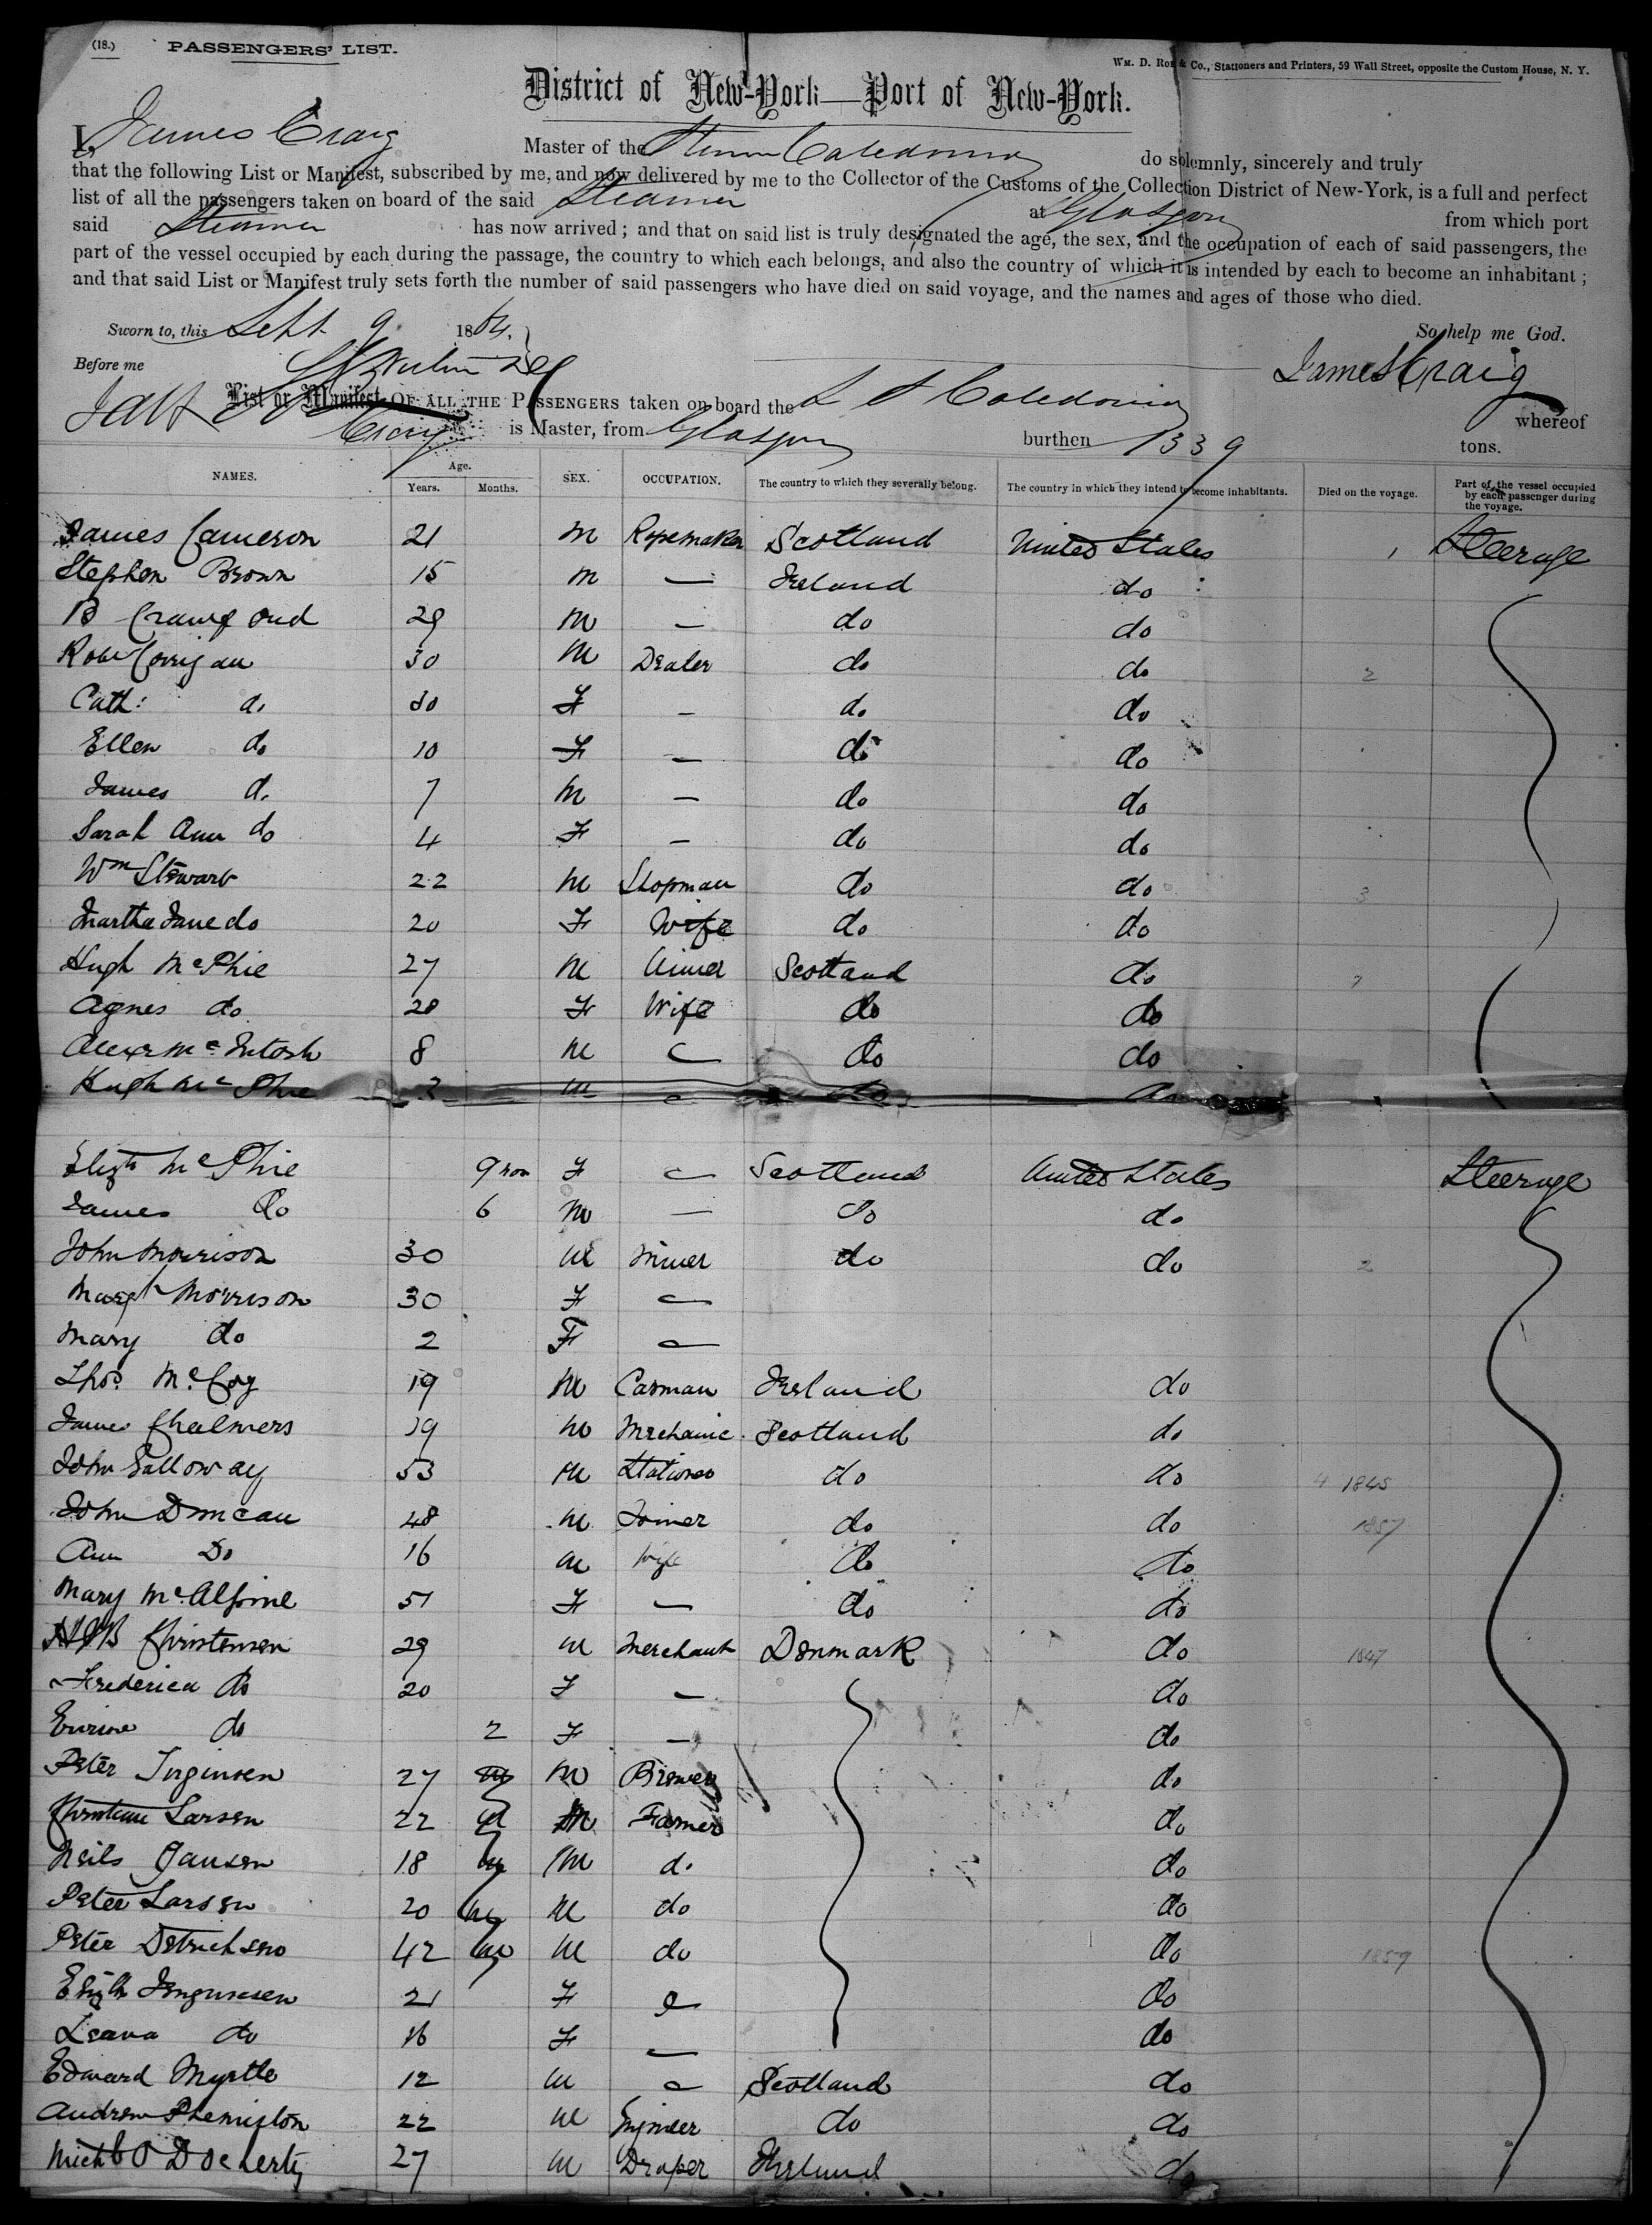 (18.) PASSENGERS' LIST.
Wm. D. Roe & Co., Stationers and Printers, 59 Wall Street, opposite the Custom House, N. Y.
District of New-York—Port of New-York.
I, James Craig Master of the Steamer Caledonia do solemnly, sincerely and truly
that the following List or Manifest, subscribed by me, and now delivered by me to the Collector of the Customs of the Collection District of New-York, is a full and perfect
list of all the passengers taken on board of the said Steamer at Glasgow from which port
said Steamer has now arrived; and that on said list is truly designated the age, the sex, and the occupation of each of said passengers, the
part of the vessel occupied by each during the passage, the country to which each belongs, and also the country of which it is intended by each to become an inhabitant;
and that said List or Manifest truly sets forth the number of said passengers who have died on said voyage, and the names and ages of those who died.
Sworn to, this Sept 9. 1864. So help me God.
Before me James Craig
List or Manifest OF ALL THE PASSENGERS taken on board the S S Caledonia whereof
Craig is Master, from Glasgow burthen 1339 tons.
NAMES. Age. Years. Months. SEX. OCCUPATION. The country to which they severally belong. The country in which they intend to become inhabitants. Died on the voyage. Part of the vessel occupied by each passenger during the voyage.
James Cameron 21 M Ropemaker Scotland United States 1 Steerage
Stephen Brown 15 M — Ireland do
B Crawford 29 M — do do
Robt Corrigan 30 M Dealer do do 2
Cath: do 30 F — do do
Ellen do 10 F — do do
James do 7 M — do do
Sarah Ann do 4 F — do do
Wm Stewart 22 M Shopman do do 3
Martha Jane do 20 F Wife do do
Hugh McPhie 27 M Miner Scotland do 7
Agnes do 28 F Wife do do
Alexr McIntosh 8 M — do do
Hugh McPhie 2 M — do do
Elizth McPhie 9 mon F — Scotland United States Steerage
James Do 6 M — Do do
John Morrison 30 M Miner do do 2
Margt Morrison 30 F —
Mary do 2 F —
Thos. McCoy 19 M Carman Ireland do
James Chalmers 19 M Mechanic Scotland do
John Galloway 53 M Stationer do do 4 1845
John Duncan 48 M Joiner do do 1857
Ann Do 16 M Wife do do
Mary McAlpine 51 F — do do
Christensen 29 M Merchant Denmark do 1847
Frederica do 20 F — do
do 2 F — do
Peter Jorginsen 27 M Brewer do
Christian Larsen 22 M Farmer do
Neils Jansen 18 M do do
Peter Larsen 20 M do do
Peter Detrichsen 42 M do do 1859
Elizth Jorgunsen 21 F — do
Leana do 16 F — do
Edward Myrtle 12 M — Scotland do
Andrew Phemiston 22 M Engineer do do
Michl O Docherty 27 M Draper Ireland do